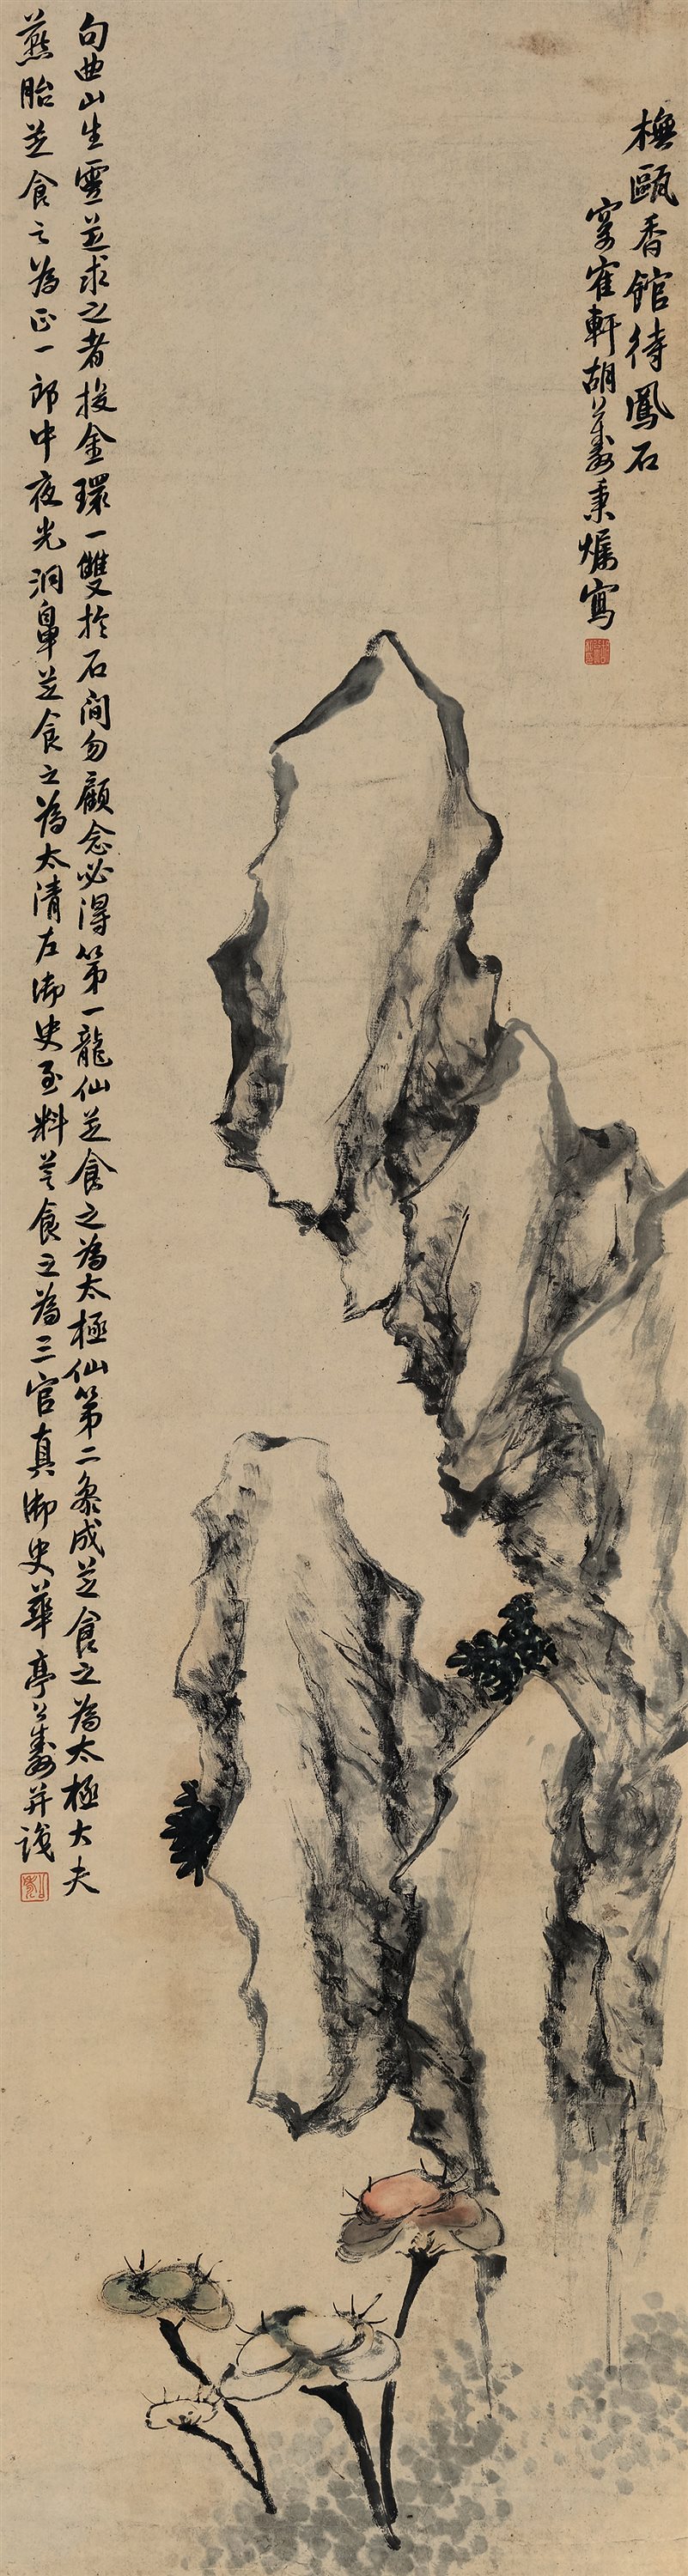 橅甌香館待鳳石
寉軒胡公壽秉燭寫
句曲山生靈芝求之者投金環一雙於石間勿顧念必得第一龍仙芝食之為太極仙第二叅成芝食之為太極大夫
燕胎芝食之為正一郎中夜光洞鼻芝食之為太清左御史至料芝食之為三官真御史華亭公壽并識